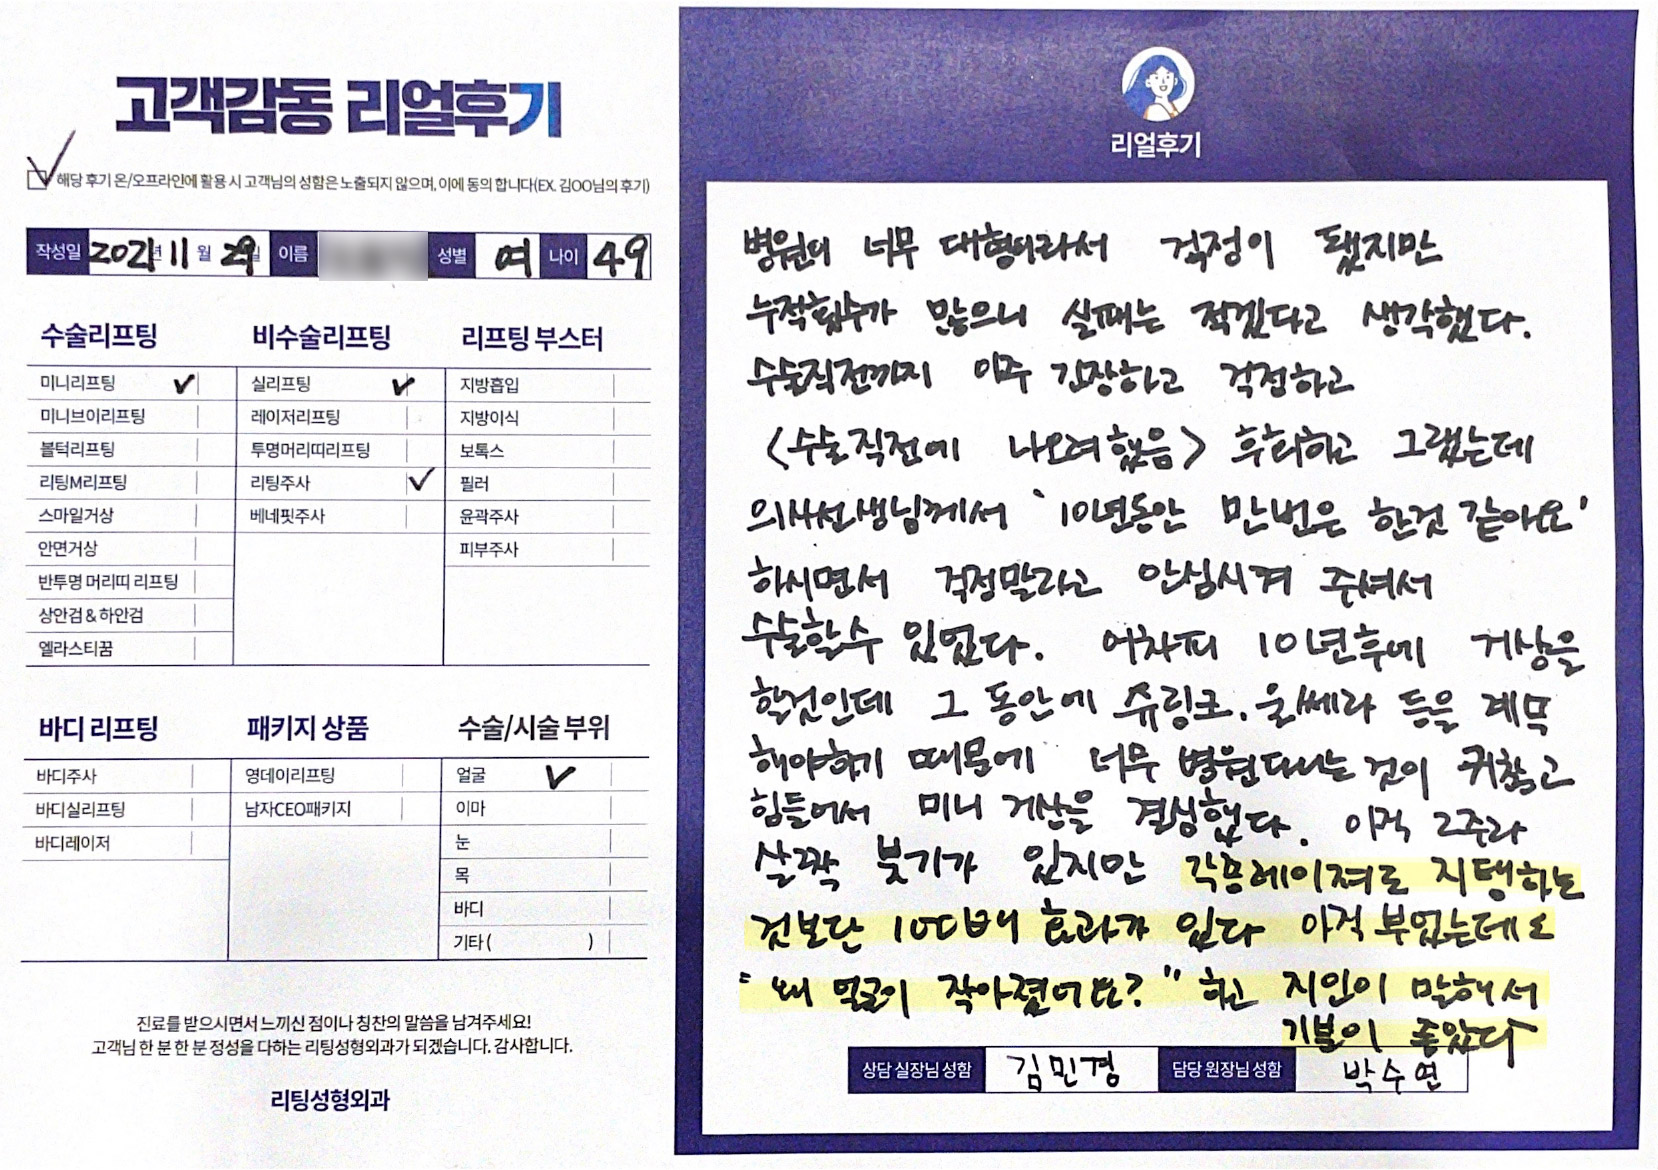 고객감동 리얼후기
해당 후기 온/오프라인에 활용 시 고객님의 성함은 노출되지 않으며, 이에 동의 합니다(EX. 김OO님의 후기)
작성일 2021년 11월 29일 이름 성별 여 나이 49
수술리프팅
미니리프팅 ✓
미니브이리프팅
볼턱리프팅
리팅M리프팅
스마일거상
안면거상
반투명 머리띠 리프팅
상안검&하안검
엘라스티꿈
비수술리프팅
실리프팅 ✓
레이저리프팅
투명머리띠리프팅
리팅주사 ✓
베네핏주사
리프팅 부스터
지방흡입
지방이식
보톡스
필러
윤곽주사
피부주사
바디 리프팅
바디주사
바디실리프팅
바디레이저
패키지 상품
영데이리프팅
남자CEO패키지
수술/시술 부위
얼굴 ✓
이마
눈
목
바디
기타 ( )
진료를 받으시면서 느끼신 점이나 칭찬의 말씀을 남겨주세요!
고객님 한 분 한 분 정성을 다하는 리팅성형외과가 되겠습니다. 감사합니다.
리팅성형외과
리얼후기
병원이 너무 대형이라서 걱정이 됐지만
누적횟수가 많으니 실패는 적겠다고 생각했다.
수술직전까지 아주 긴장하고 걱정하고
<수술직전에 나오려했음> 후회하고 그랬는데
의사선생님께서 '10년동안 만번은 한것 같아요'
하시면서 걱정말라고 안심시켜 주셔서
수술할수 있었다. 어차피 10년후에 거상을
할것인데 그 동안에 슈링크. 울쎄라 등을 계속
해야하기 때문에 너무 병원다니는 것이 귀찮고
힘들어서 미니 거상을 결심했다. 아직 2주라
살짝 붓기가 있지만 각종레이져로 지탱하는
것보단 100배 효과가 있다 아직 부었는데도
"왜 얼굴이 작아졌어요?" 하고 지인이 말해서
기분이 좋았다
상담 실장님 성함 김민경 담당 원장님 성함 박수연